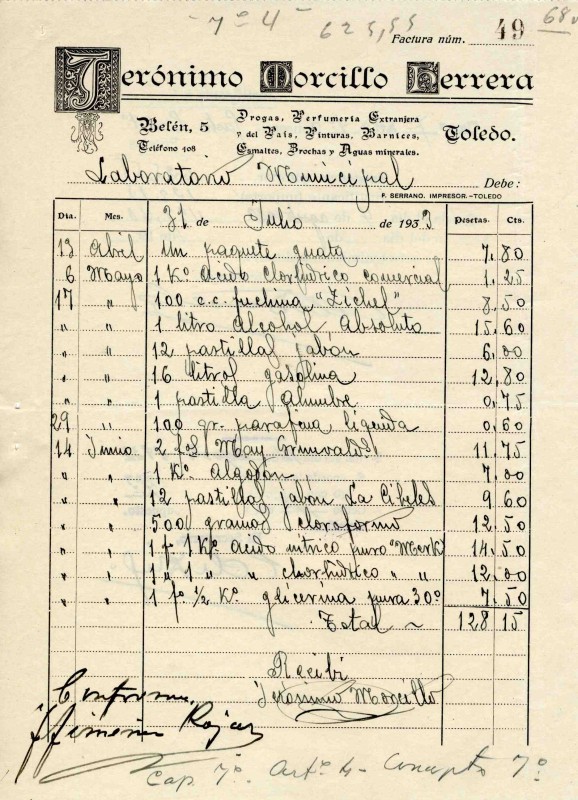 7º 4º 625,55 680
Factura núm. 49
Jerónimo Morcillo Herrera
Belén, 5
Teléfono 108
Drogas, Perfumería Extranjera
y del País, Pinturas, Barnices,
Esmaltes, Brochas y Aguas minerales.
Toledo.
Laboratorio Municipal Debe:
F. SERRANO. IMPRESOR.-TOLEDO
Día. Mes. 31 de Julio de 193 Pesetas. Cts.
13 Abril Un paquete guata 7.80
6 Mayo 1 Kº Acido clorhídrico comercial 1.25
17 " 100 c.c. fuchina "Zichel" 8.50
" " 1 litro Alcohol Absoluto 15.60
" " 12 pastillas jabón 6.00
" " 16 litros gasolina 12,80
" " 1 pastilla Alumbre 0,75
29 " 100 gr. parafina líquida 0,60
14 Junio 2 May Grunwald 11.75
" " 1 Kº Algodón 7.00
" " 12 pastillas jabón La Cibeles 9 60
" " 500 gramos cloroformo 12.50
" " 1 fº 1 Kº Acido nítrico puro "Merk" 14.50
" " 1 " 1 " " clorhídrico " " 12.00
" " 1 fº ½ Kº glicerina pura 30º 7.50
Total ~ 128 15
Recibí
Jerónimo Morcillo
Conforme,
Jimenez Rojas
Cap. 7º. Artº 4- Concepto 7º